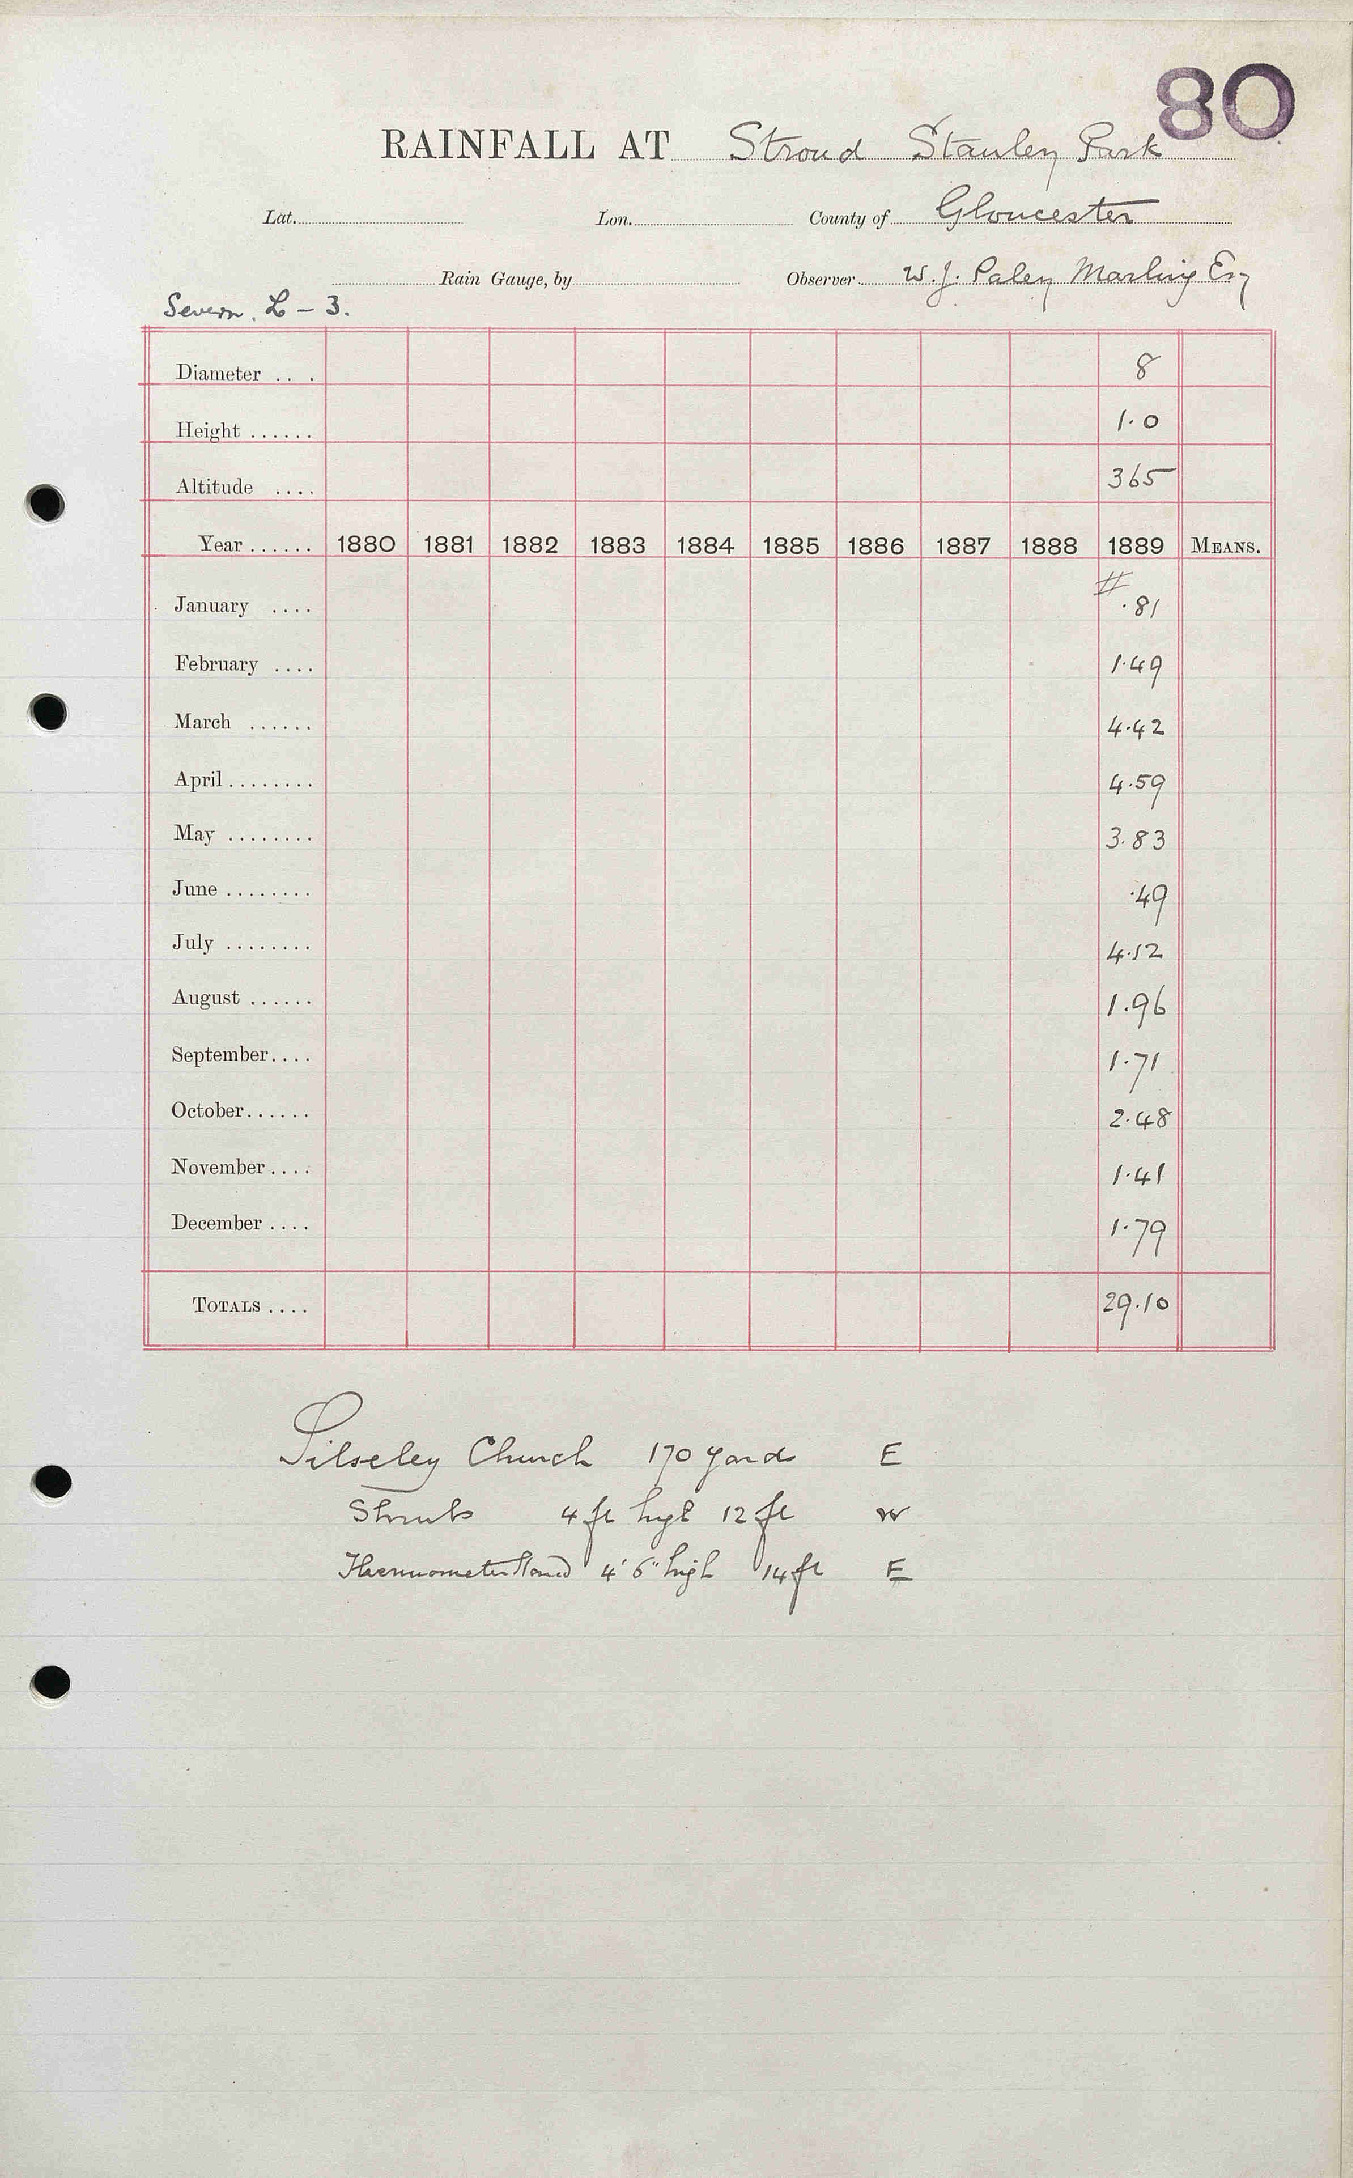 80
RAINFALL AT Stroud Stanley Park
Lat. Lon. County of Gloucester
Rain Gauge, by Observer W. J. Paley Marling Esq
Severn. L - 3.
Diameter .... 8
Height ...... 1.0
Altitude .... 365
Year ...... 1880 1881 1882 1883 1884 1885 1886 1887 1888 1889 MEANS.
#
January .... .81
February .... 1.49
March ...... 4.42
April ........ 4.59
May ........ 3.83
June ........ .49
July ........ 4.12
August ...... 1.96
September.... 1.71
October...... 2.48
November .... 1.41
December .... 1.79
TOTALS .... 29.10
Silseley Church 170 yards E
Shrubs 4 ft high 12 ft W
Thermometer Stand 4' 6" high 14 ft E